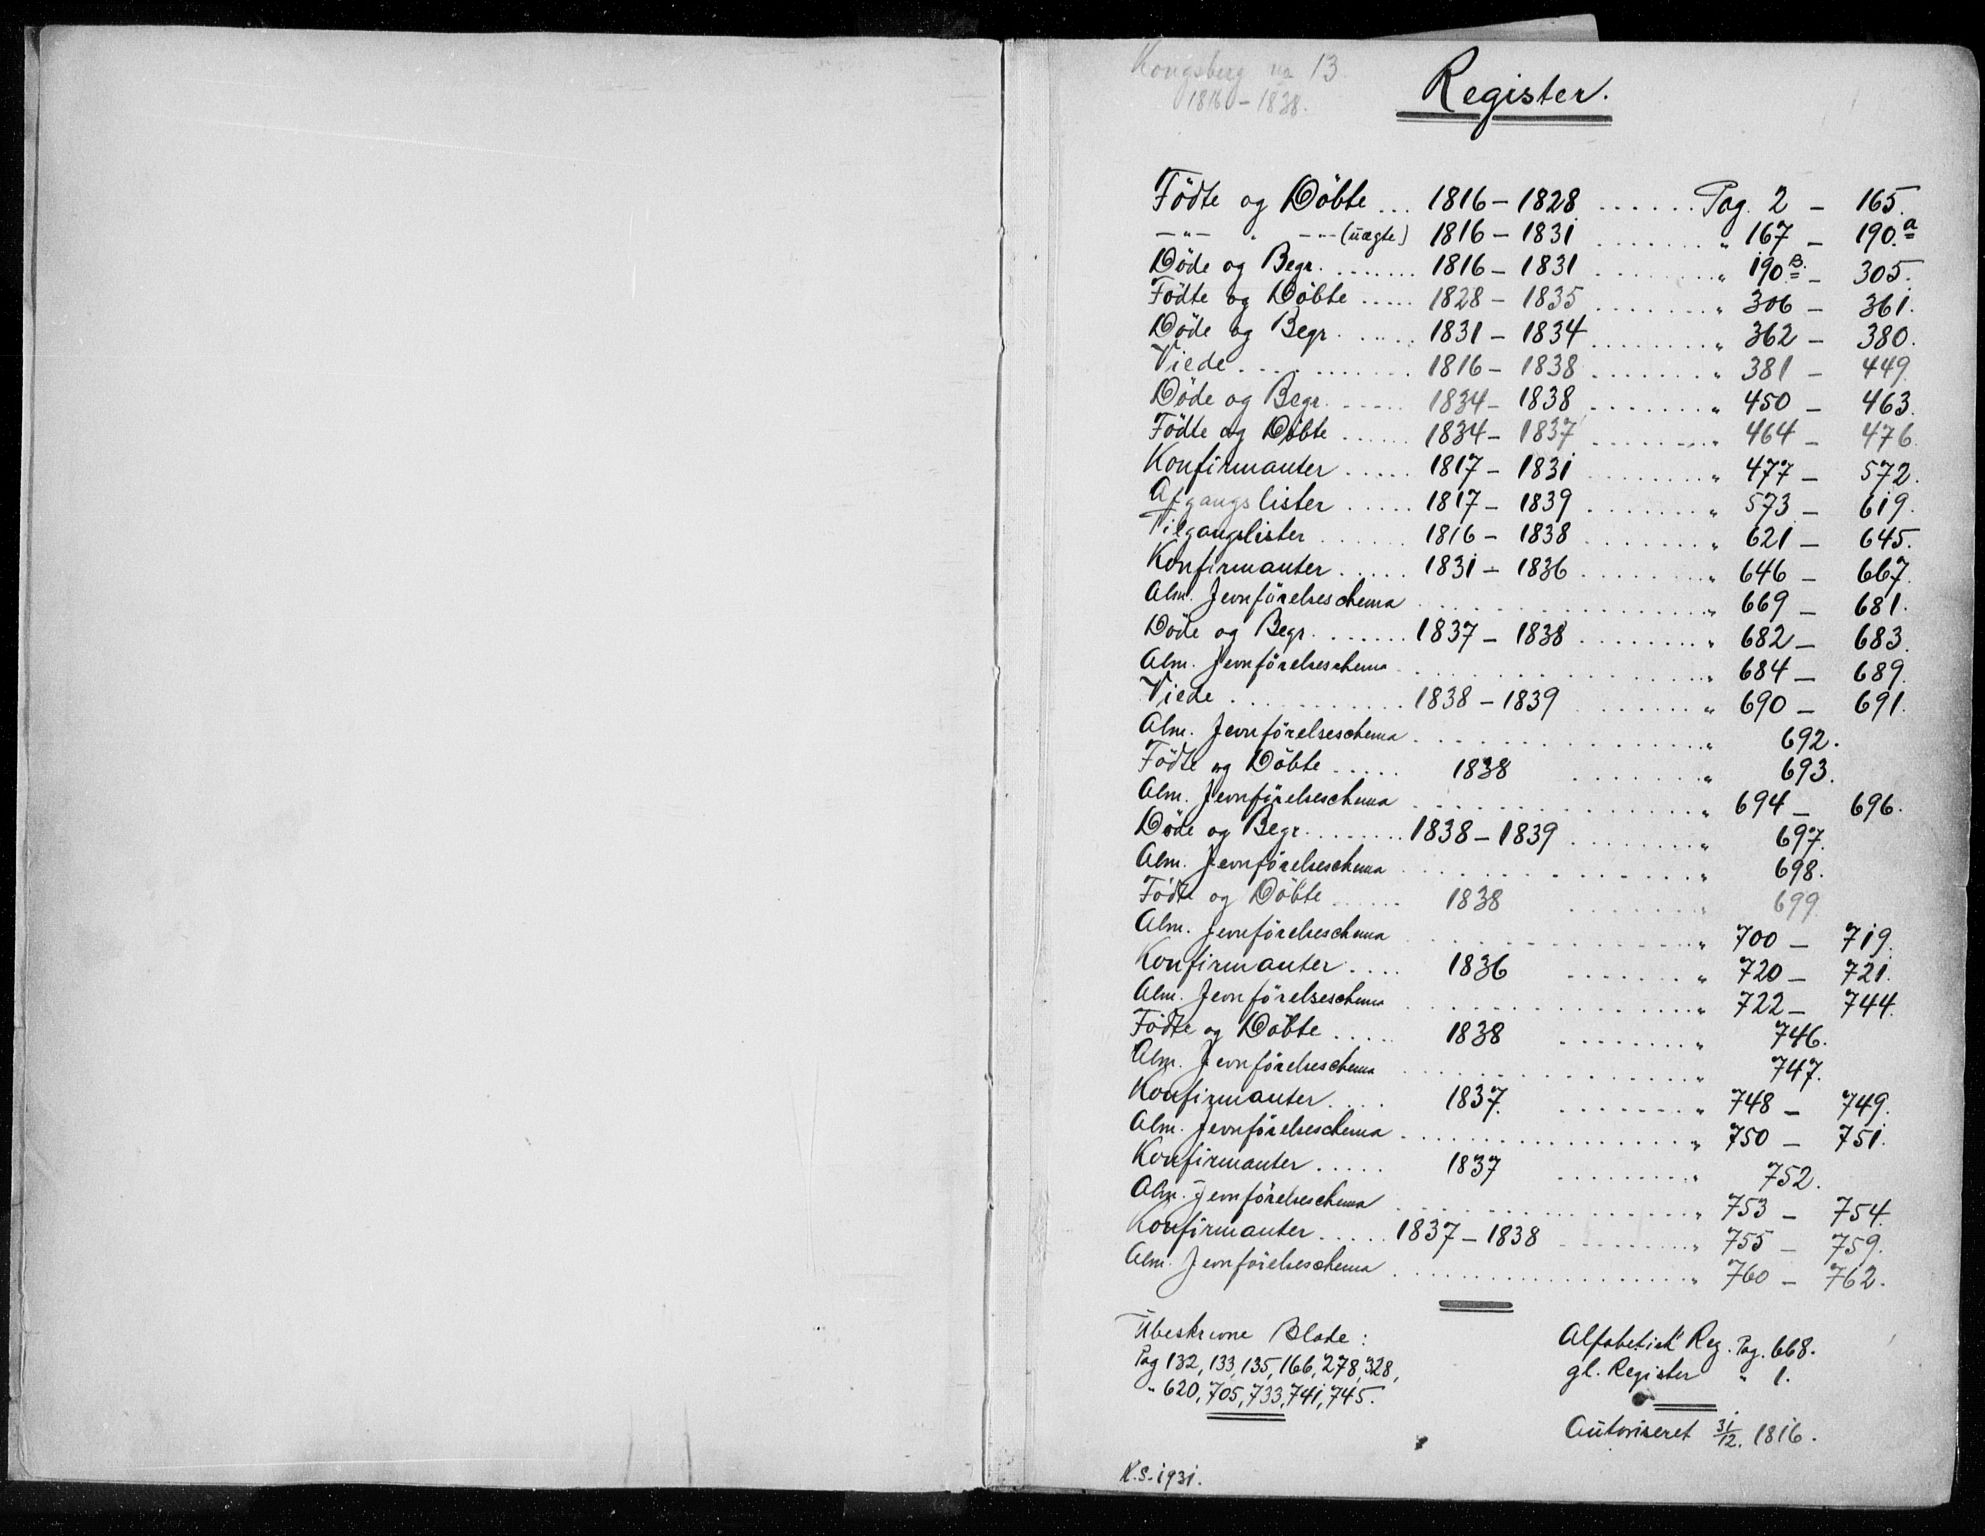 Kongsberg no 13.
1816 – 1838.
Register.
Födte og Döbte ... 1816 – 1828 ...... Pag. 2 – 165.
–"– " –"– (uægte) 1816 – 1831 ........ " 167 – 190.a
Döde og Begr. ....... 1816 – 1831 ........ " 190.B. – 305.
Födte og Döbte ..... 1828 – 1835 ........ " 306 – 361.
Döde og Begr. ...... 1831 – 1834 ........ " 362 – 380.
Viede ............ 1816 – 1838 ........ " 381 – 449.
Döde og Begr. ..... 1834 – 1838 ........ " 450 – 463.
Födte og Döbte ...... 1834 – 1837 ........ " 464 – 476.
Konfirmanter ..... 1817 – 1831 ........ " 477 – 572.
Afgangslister ..... 1817 – 1839 ........ " 573 – 619.
Tilgangslister ...... 1816 – 1838 ........ " 621 – 645.
Konfirmanter ..... 1831 – 1836 ........ " 646 – 667.
Alm. Jevnförelseschema ................ " 669 – 681.
Döde og Begr. ....... 1837 – 1838 ........ " 682 – 683.
Alm. Jevnförelseschema ................ " 684 – 689.
Viede ............ 1838 – 1839 ........ " 690 – 691.
Alm. Jevnförelseschema ................ " 692.
Födte og Döbte ..... 1838 ........ " 693.
Alm. Jevnförelseschema ................ " 694 – 696.
Döde og Begr. ....... 1838 – 1839 ........ " 697.
Alm. Jevnförelseschema ................ " 698.
Födte og Döbte ...... 1838 ........ " 699.
Alm. Jevnförelseschema ................ " 700 – 719.
Konfirmanter .... 1836 ........ " 720 – 721.
Alm. Jevnförelseschema ................ " 722 – 744.
Födte og Döbte ..... 1838 ........ " 746.
Alm. Jevnförelseschema ................ " 747.
Konfirmanter .... 1837. ........ " 748 – 749.
Alm. Jevnförelseschema ................ " 750 – 751.
Konfirmanter ..... 1837 ........ " 752.
Alm. Jevnförelseschema ................ " 753 – 754.
Konfirmanter ..... 1837 – 1838 ........ " 755 – 759.
Alm. Jevnförelseschema ................ " 760 – 762.
Ubeskrevne Blade :
Pag 132, 133, 135, 166, 278, 328,
" 620, 705, 733, 741, 745.
Alfabetisk Reg. Pag. 668.
gl. Register " 1.
Autoriseret 31/12. 1816.
K.S. 1931.